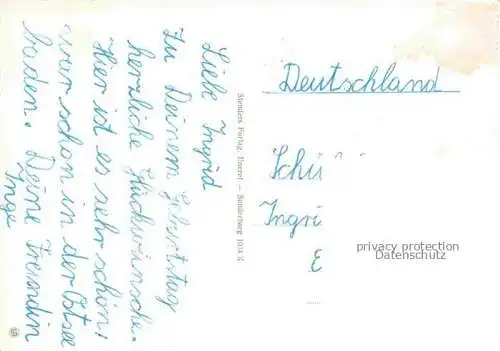 Liebe Ingrid
Zu Deinem Geburtstag
herzliche Glückwünsche.
Hier ist es sehr schön,
war schon in der Ostsee
baden. Deine Freundin
Inge
Stenders Forlag. Eneret — Sønderborg
Deutschland
Schü
Ingri
E
privacy protection
Datenschutz